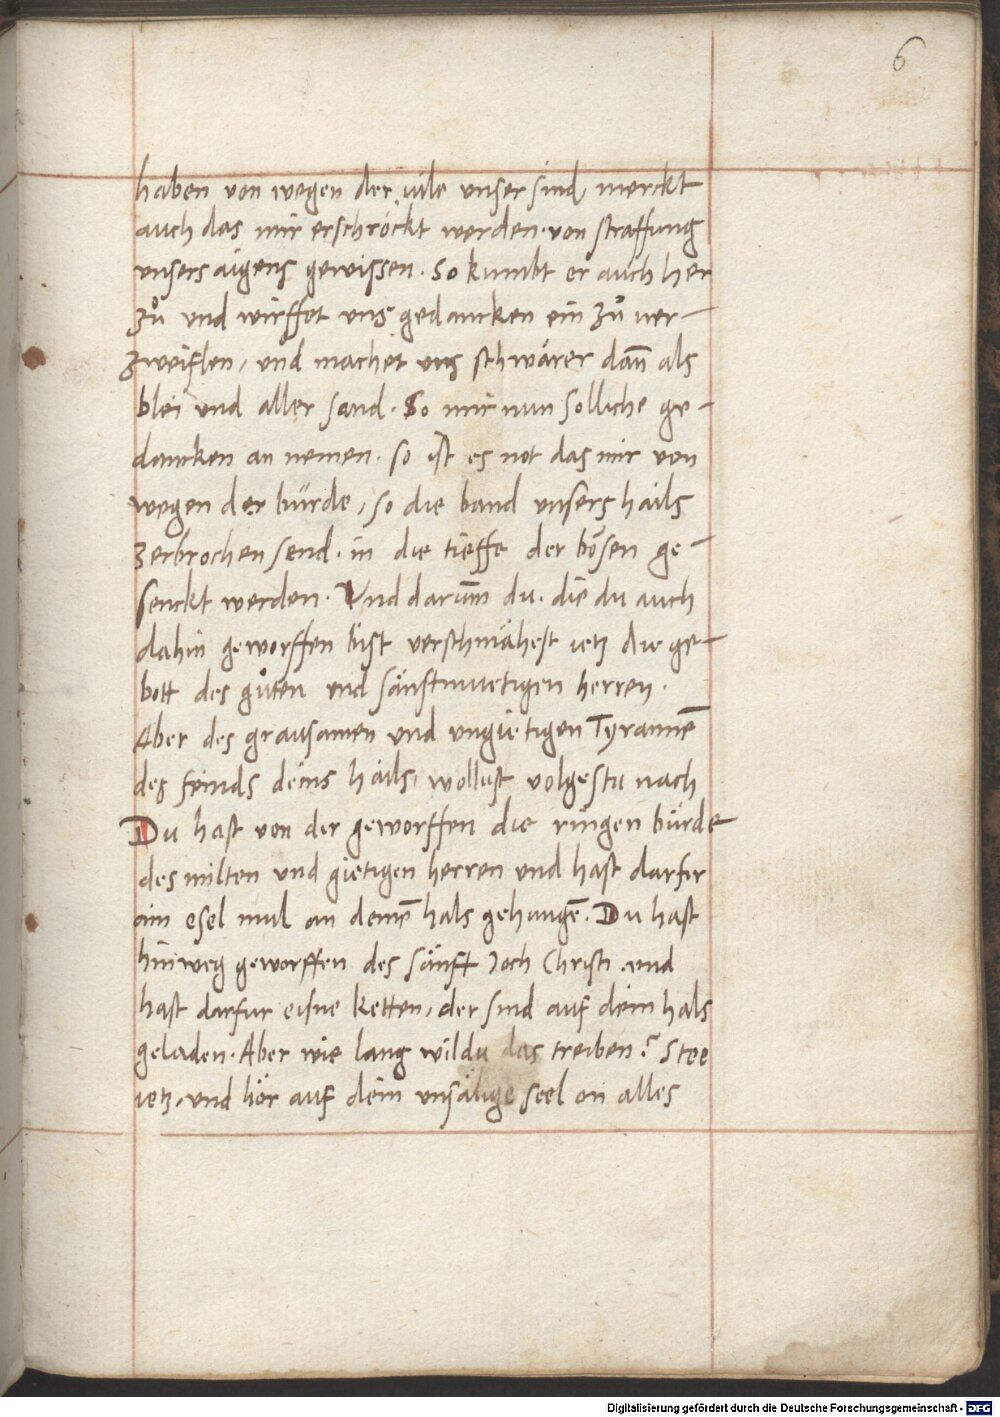 6
haben von wegen der vile unser sind, merckt
auch das mir erschröckt werden · von straffung
unsers aigens gewissen · so kumbt er auch her
zů und wirffet uns gedancken ein zů ver-
zweiflen, und machet uns schwärer dañ als
blei und aller sand · So mir nun solliche ge-
dancken an nemen · so ist es not das mir von
wegen der bürde, so die band unsers hails
zerbrochen send · in die tieffe der bösen ge-
senckt werden · Und darum̄ du · die du auch
dahin geworffen bist verschmähest ietz die ge-
bott des gůten und sänftmuetigen herren ·
Aber des grausamen und ungietigen Tyrannē
des feinds deins hails, wollust volgestu nach
Du hast von der geworffen die ringen bürde
des milten und gietigen herren und hast darfir
ain esel mul an deinē hals gehangē · Du hast
hinweg geworffen des sänft Joch Christi und
hast darfur eisne ketten, der sind auf dein hals
geladen · Aber wie lang wildu das treiben? Stee
ietz, und hör auf dein unsälige seel on alles
Digitalisierung gefördert durch die Deutsche Forschungsgemeinschaft - DFG